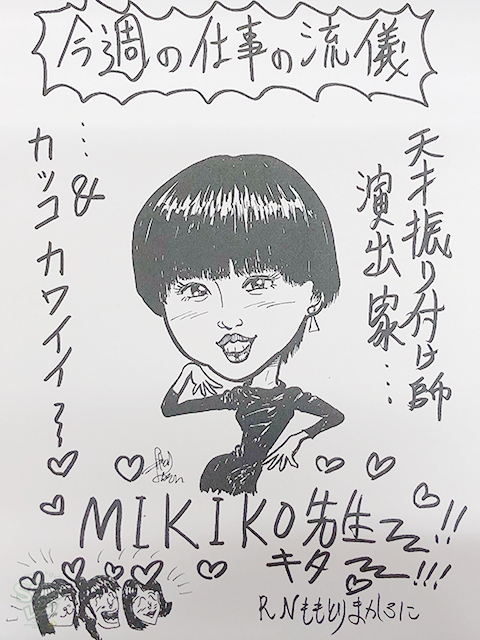 今週の仕事の流儀
天才振り付け師
演出家…
…&
カッコカワイイ〜
MIKIKO先生〜!!
キタ〜!!!
RNももとりまかろに